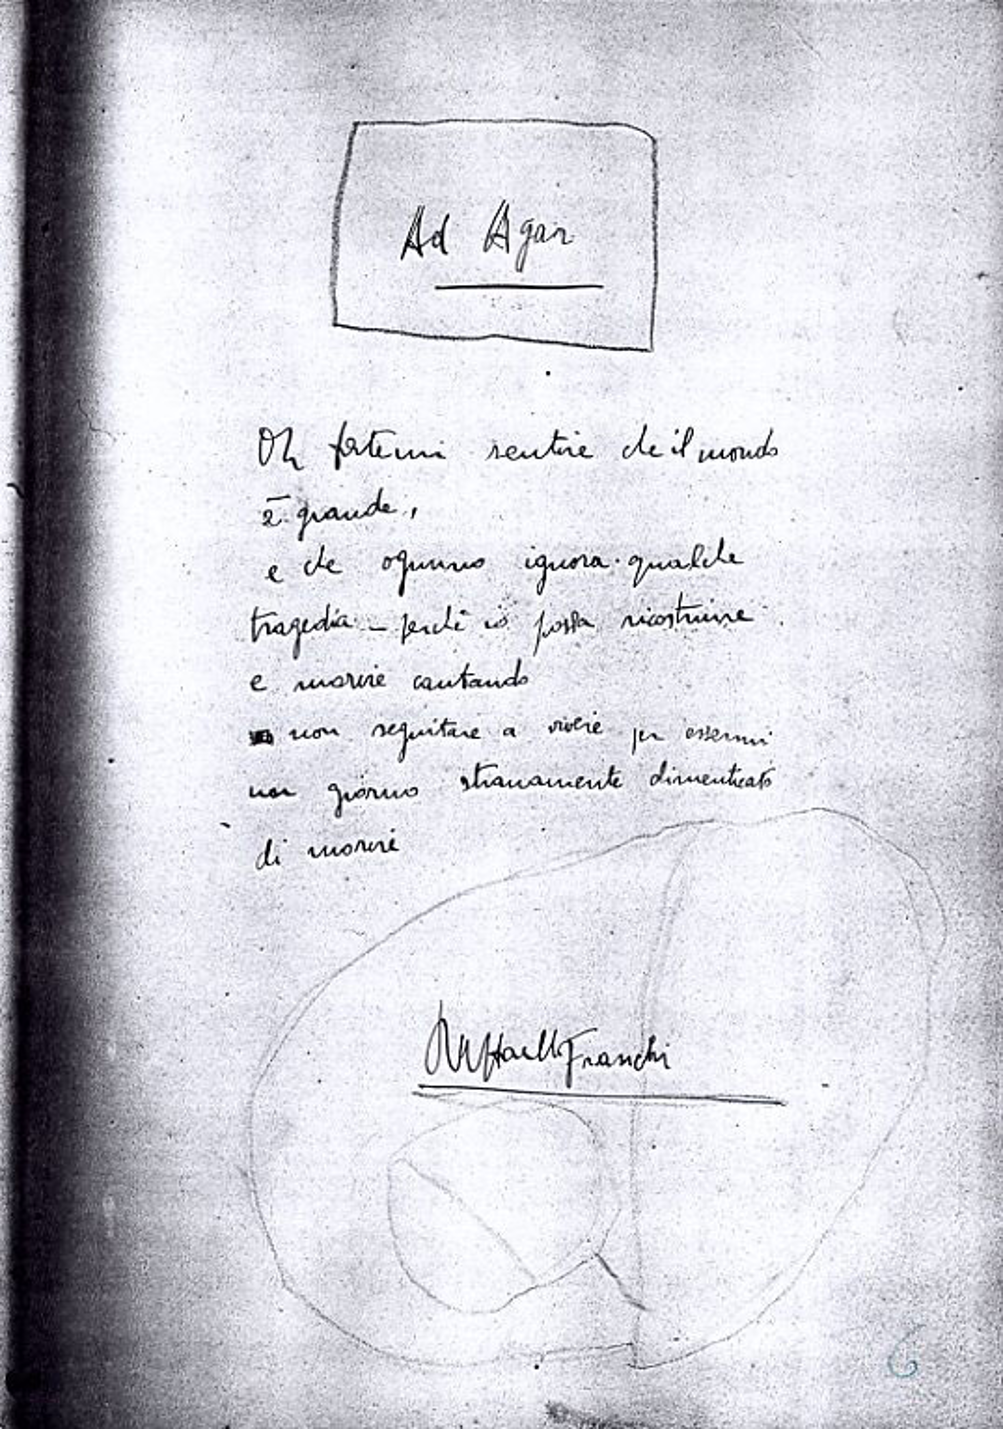 Ad Agar
Oh fatemi sentire che il mondo
è grande,
e che ognuno ignora qualche
tragedia - perchè io possa ricostruire
e morire cantando
non seguitare a vivere per essermi
un giorno stranamente dimenticato
di morire
Raffaello Franchi
6